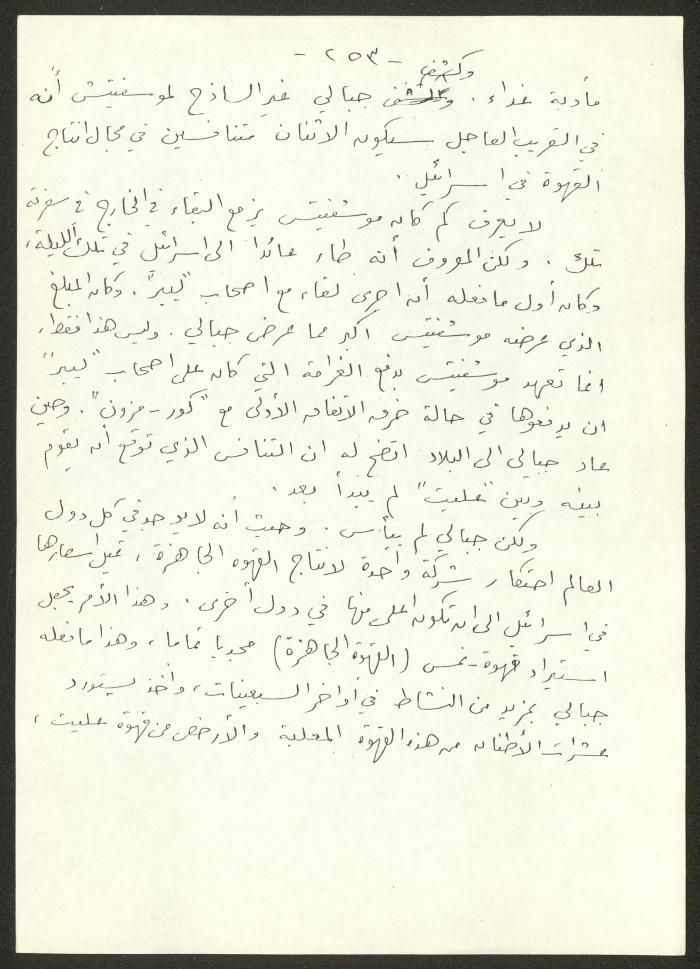 - ٢٥٣ -
وكشف
مأدبة غداء . جبالي غير الساذج لموسفيتش أنه
في القريب العاجل سيكون الاثنان متنافسين في مجال انتاج
القهوة في اسرائيل .
لا يعرف كم كان موشفيتس يزمع البقاء في الخارج في سفرته
تلك . ولكن المعروف أنه طار عائدا الى اسرائيل في تلك الليلة،
وكان أول ما فعله أن اجرى لقاء مع اصحاب "ليبر" . وكان المبلغ
الذي عرضه موشفيتس اكبر مما عرض جبالي . وليس هذا فقط،
انما تعهد موشفيتس بدفع الغرامة التي كان على اصحاب "ليبر"
ان يدفعوها في حالة خرق الاتفاق الأولى مع "كور - مزون" . وحين
عاد جبالي الى البلاد اتضح له ان التنافس الذي توقع أن يقوم
بينه وبين "عليت" لم يبدأ بعد .
ولكن جبالي لم ييأس . وحيث أنه لا يوجد في كل دول
العالم احتكار شركة واحدة لانتاج القهوه الجاهزة ، تميل اسعارها
في اسرائيل الى ان تكون اعلى منها في دول أخرى . وهذا الأمر يجعل
استيراد قهوة - نمس (القهوة الجاهزة) مجديا تماما ، وهذا ما فعله
جبالي بمزيد من النشاط في أواخر السبعينات ، وأخذ يستورد
عشرات الأطنان من هذه القهوة المعلبة والأرخص من قهوة عليت ،